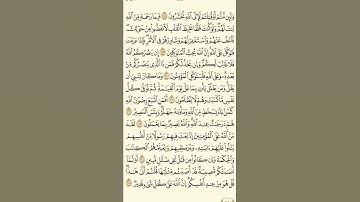 وَلَئِن مُّتُّمْ أَوْ قُتِلْتُمْ لَإِلَى ٱللَّهِ تُحْشَرُونَ ١٥٨ فَبِمَا رَحْمَةٍ مِّنَ ٱللَّهِ
لِنتَ لَهُمْ وَلَوْ كُنتَ فَظًّا غَلِيظَ ٱلْقَلْبِ لَٱنفَضُّوا۟ مِنْ حَوْلِكَ
فَٱعْفُ عَنْهُمْ وَٱسْتَغْفِرْ لَهُمْ وَشَاوِرْهُمْ فِى ٱلْأَمْرِ فَإِذَا عَزَمْتَ
فَتَوَكَّلْ عَلَى ٱللَّهِ إِنَّ ٱللَّهَ يُحِبُّ ٱلْمُتَوَكِّلِينَ ١٥٩ إِن يَنصُرْكُمُ ٱللَّهُ
فَلَا غَالِبَ لَكُمْ وَإِن يَخْذُلْكُمْ فَمَن ذَا ٱلَّذِى يَنصُرُكُم مِّنۢ
بَعْدِهِۦ وَعَلَى ٱللَّهِ فَلْيَتَوَكَّلِ ٱلْمُؤْمِنُونَ ١٦٠ وَمَا كَانَ لِنَبِىٍّ أَن
يَغُلَّ وَمَن يَغْلُلْ يَأْتِ بِمَا غَلَّ يَوْمَ ٱلْقِيَٰمَةِ ثُمَّ تُوَفَّىٰ كُلُّ
نَفْسٍ مَّا كَسَبَتْ وَهُمْ لَا يُظْلَمُونَ ١٦١ أَفَمَنِ ٱتَّبَعَ رِضْوَٰنَ ٱللَّهِ
كَمَنۢ بَآءَ بِسَخَطٍ مِّنَ ٱللَّهِ وَمَأْوَىٰهُ جَهَنَّمُ وَبِئْسَ ٱلْمَصِيرُ ١٦٢
هُمْ دَرَجَٰتٌ عِندَ ٱللَّهِ وَٱللَّهُ بَصِيرٌۢ بِمَا يَعْمَلُونَ ١٦٣ لَقَدْ
مَنَّ ٱللَّهُ عَلَى ٱلْمُؤْمِنِينَ إِذْ بَعَثَ فِيهِمْ رَسُولًا مِّنْ أَنفُسِهِمْ
يَتْلُوا۟ عَلَيْهِمْ ءَايَٰتِهِۦ وَيُزَكِّيهِمْ وَيُعَلِّمُهُمُ ٱلْكِتَٰبَ
وَٱلْحِكْمَةَ وَإِن كَانُوا۟ مِن قَبْلُ لَفِى ضَلَٰلٍ مُّبِينٍ ١٦٤ أَوَلَمَّآ
أَصَٰبَتْكُم مُّصِيبَةٌ قَدْ أَصَبْتُم مِّثْلَيْهَا قُلْتُمْ أَنَّىٰ هَٰذَا
قُلْ هُوَ مِنْ عِندِ أَنفُسِكُمْ إِنَّ ٱللَّهَ عَلَىٰ كُلِّ شَىْءٍ قَدِيرٌ ١٦٥